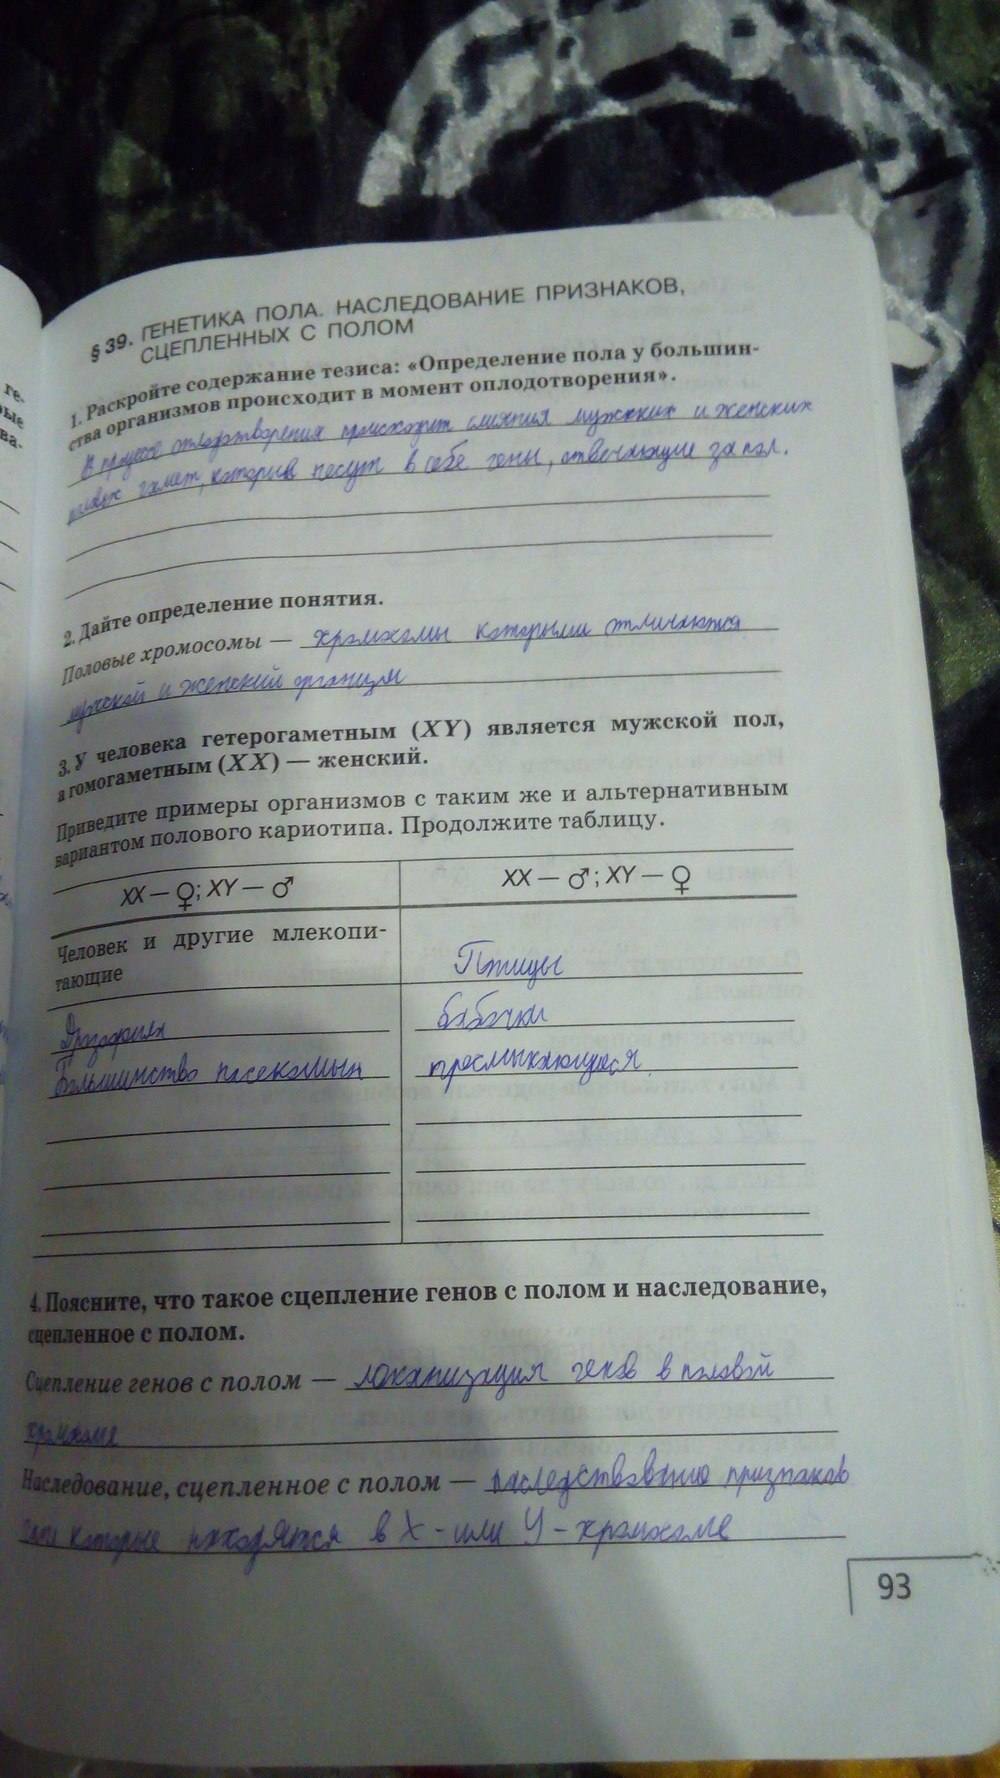 ге-
рые
ва-
§ 39. ГЕНЕТИКА ПОЛА. НАСЛЕДОВАНИЕ ПРИЗНАКОВ,
СЦЕПЛЕННЫХ С ПОЛОМ
1. Раскройте содержание тезиса: «Определение пола у большин-
ства организмов происходит в момент оплодотворения».
В процессе оплодотворения происходит слияния мужских и женских
гамет, которые несут в себе гены, отвечающие за пол.
2. Дайте определение понятия.
Половые хромосомы — хромосомы которыми отличаются
мужской и женский организм
3. У человека гетерогаметным (XY) является мужской пол,
а гомогаметным (XX) — женский.
Приведите примеры организмов с таким же и альтернативным
вариантом полового кариотипа. Продолжите таблицу.
XX — ♀; XY — ♂
XX — ♂; XY — ♀
Человек и другие млекопи-
тающие
Птицы
Дрозофила
бабочки
Большинство насекомых
пресмыкающиеся.
4. Поясните, что такое сцепление генов с полом и наследование,
сцепленное с полом.
Сцепление генов с полом — локализация генов в половой
хромосоме
Наследование, сцепленное с полом — наследствование признаков
которые находятся в X - или Y - хромосоме
93